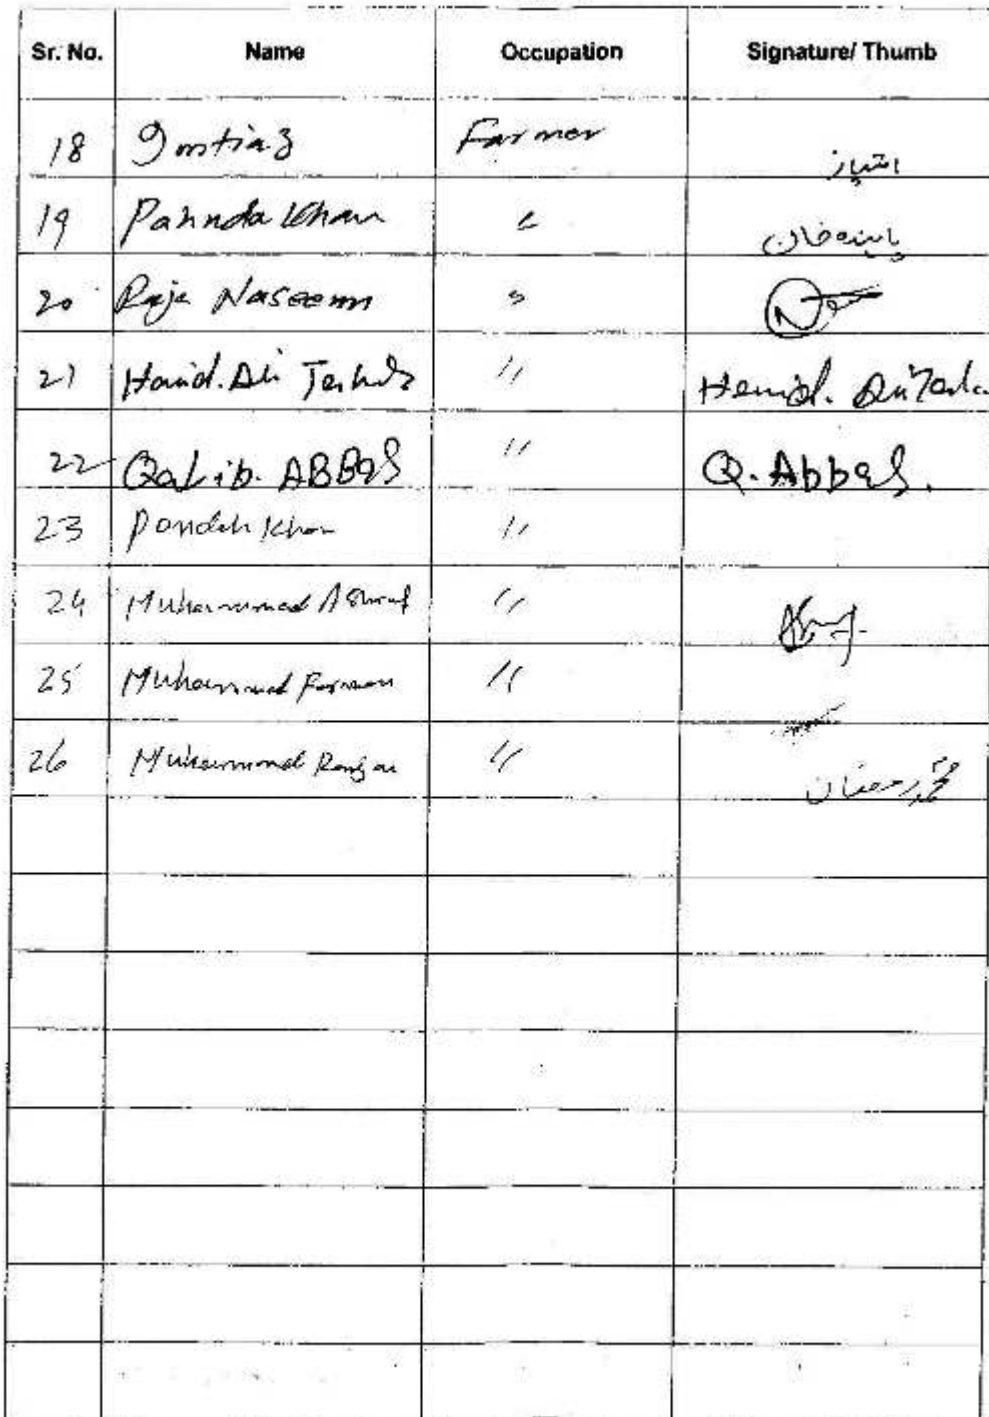 Sr. No. Name Occupation Signature/ Thumb
18 Imtiaz Farmer امتیاز
19 Painda Khan " پاینده خان
20 Raja Naseem "
21 Hamid. Ali " Hamid. Ali
22 Qalib. ABBAS " Q. Abbas.
23 Pandah Khan "
24 Muhammad Ashraf "
25 Muhammad Farman "
26 Muhammad " محمد رمضان